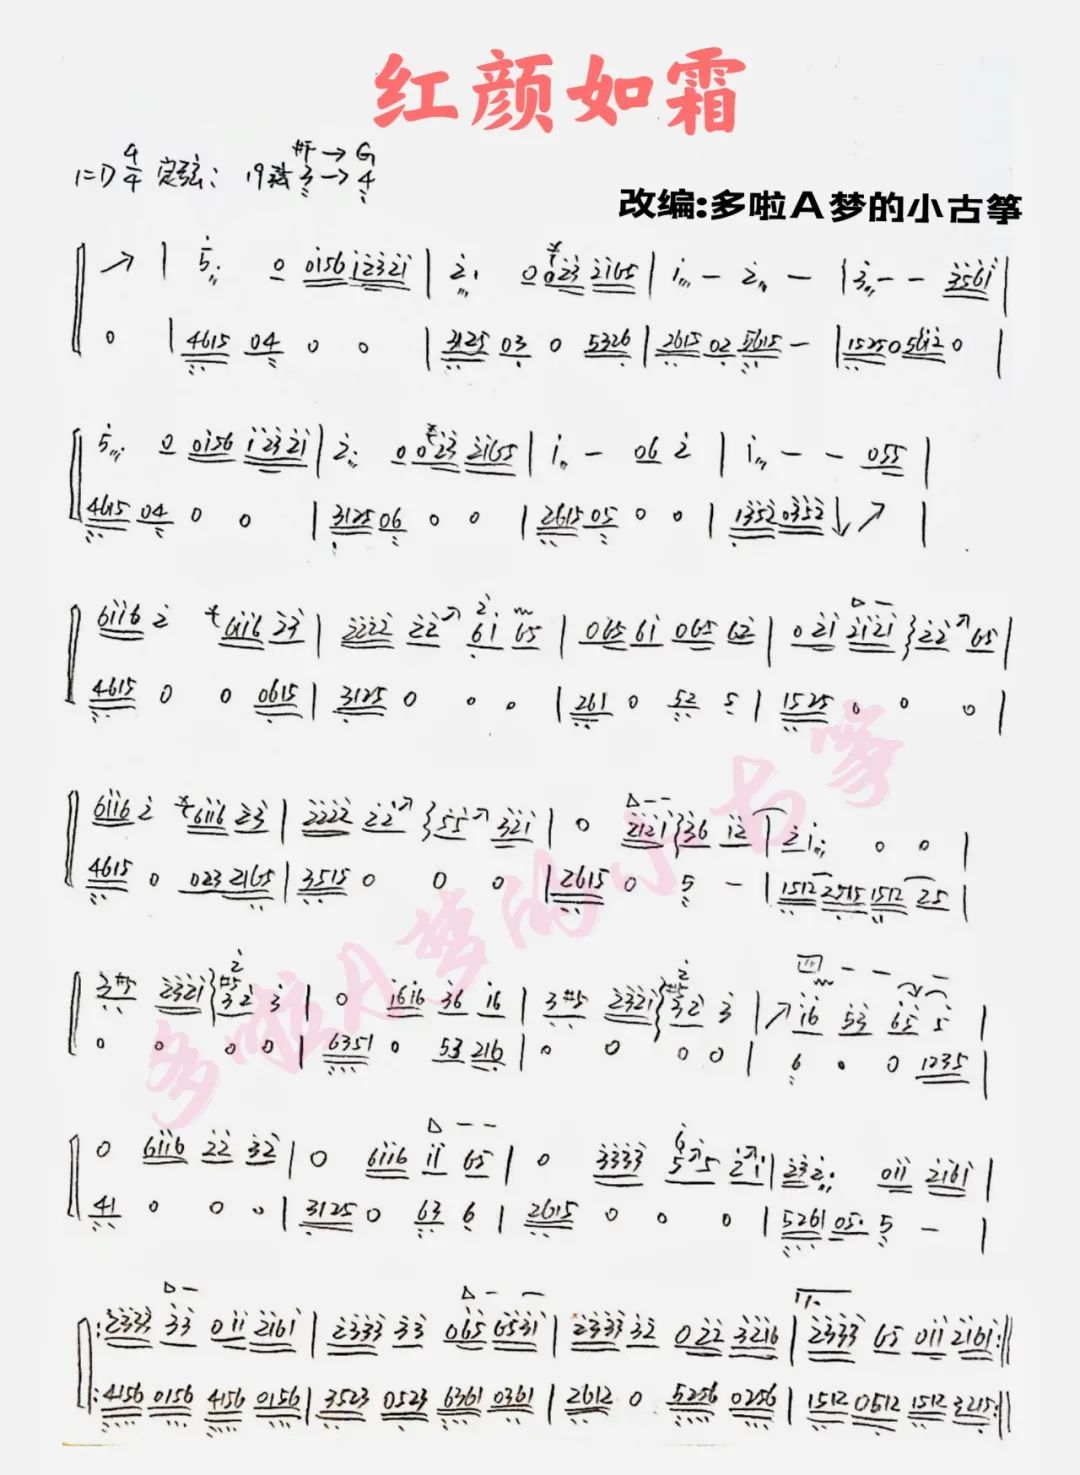 红颜如霜
1=D 4/4 定弦: 19弦 #F→G
3→4
改编:多啦A梦的小古筝
↗ | 5 0 0156 12321 | 2. 0 023 2165 | 1 - 2 - | 3 - - 3561 |
0 | 4615 04 0 0 | 3125 03 0 5326 | 2615 02 5615 - | 1525 05612 0 |
5 0 0156 12321 | 2. 0 023 2165 | 1 - 06 2 | 1 - - 055 |
4615 04 0 0 | 3125 06 0 0 | 2615 05 0 0 | 1352 0352 ↓↗ |
6116 2 6116 23 | 2222 22↗ 61 65 | 065 61 065 62 | 0 21 2121 22↗65 |
4615 0 0 0615 | 3125 0 0 0 | 261 0 52 5 | 1525 0 0 0 |
6116 2 6116 23 | 2222 22↗ 55↗ 321 | 0 2121 36 12 | 21. 0 0 |
4615 0 023 2165 | 3515 0 0 0 | 2615 0 5 - | 1512 2515 1512 25 |
3#5 2321 32 3 | 0 1616 36 16 | 3#5 2321 32 3 | ↗16 53 65 5 |
0 0 0 0 | 6351 0 53 216 | 0 0 0 0 | 6 0 0 1235 |
0 6116 22 32 | 0 6116 11 65 | 0 3333 5↗5 2↗1 | 232. 011 2161 |
41 0 0 0 | 3125 0 63 6 | 2615 0 0 0 | 5261 05. 5 - |
:2333 33 011 2161 | 2333 33 065 6531 | 2333 32 022 3216 | 2333 65 011 2161:||
:4156 0156 4156 0156 | 3523 0523 6361 0361 | 2612 0 5256 0256 | 1512 0512 1512 3215:||
多啦A梦的小古筝